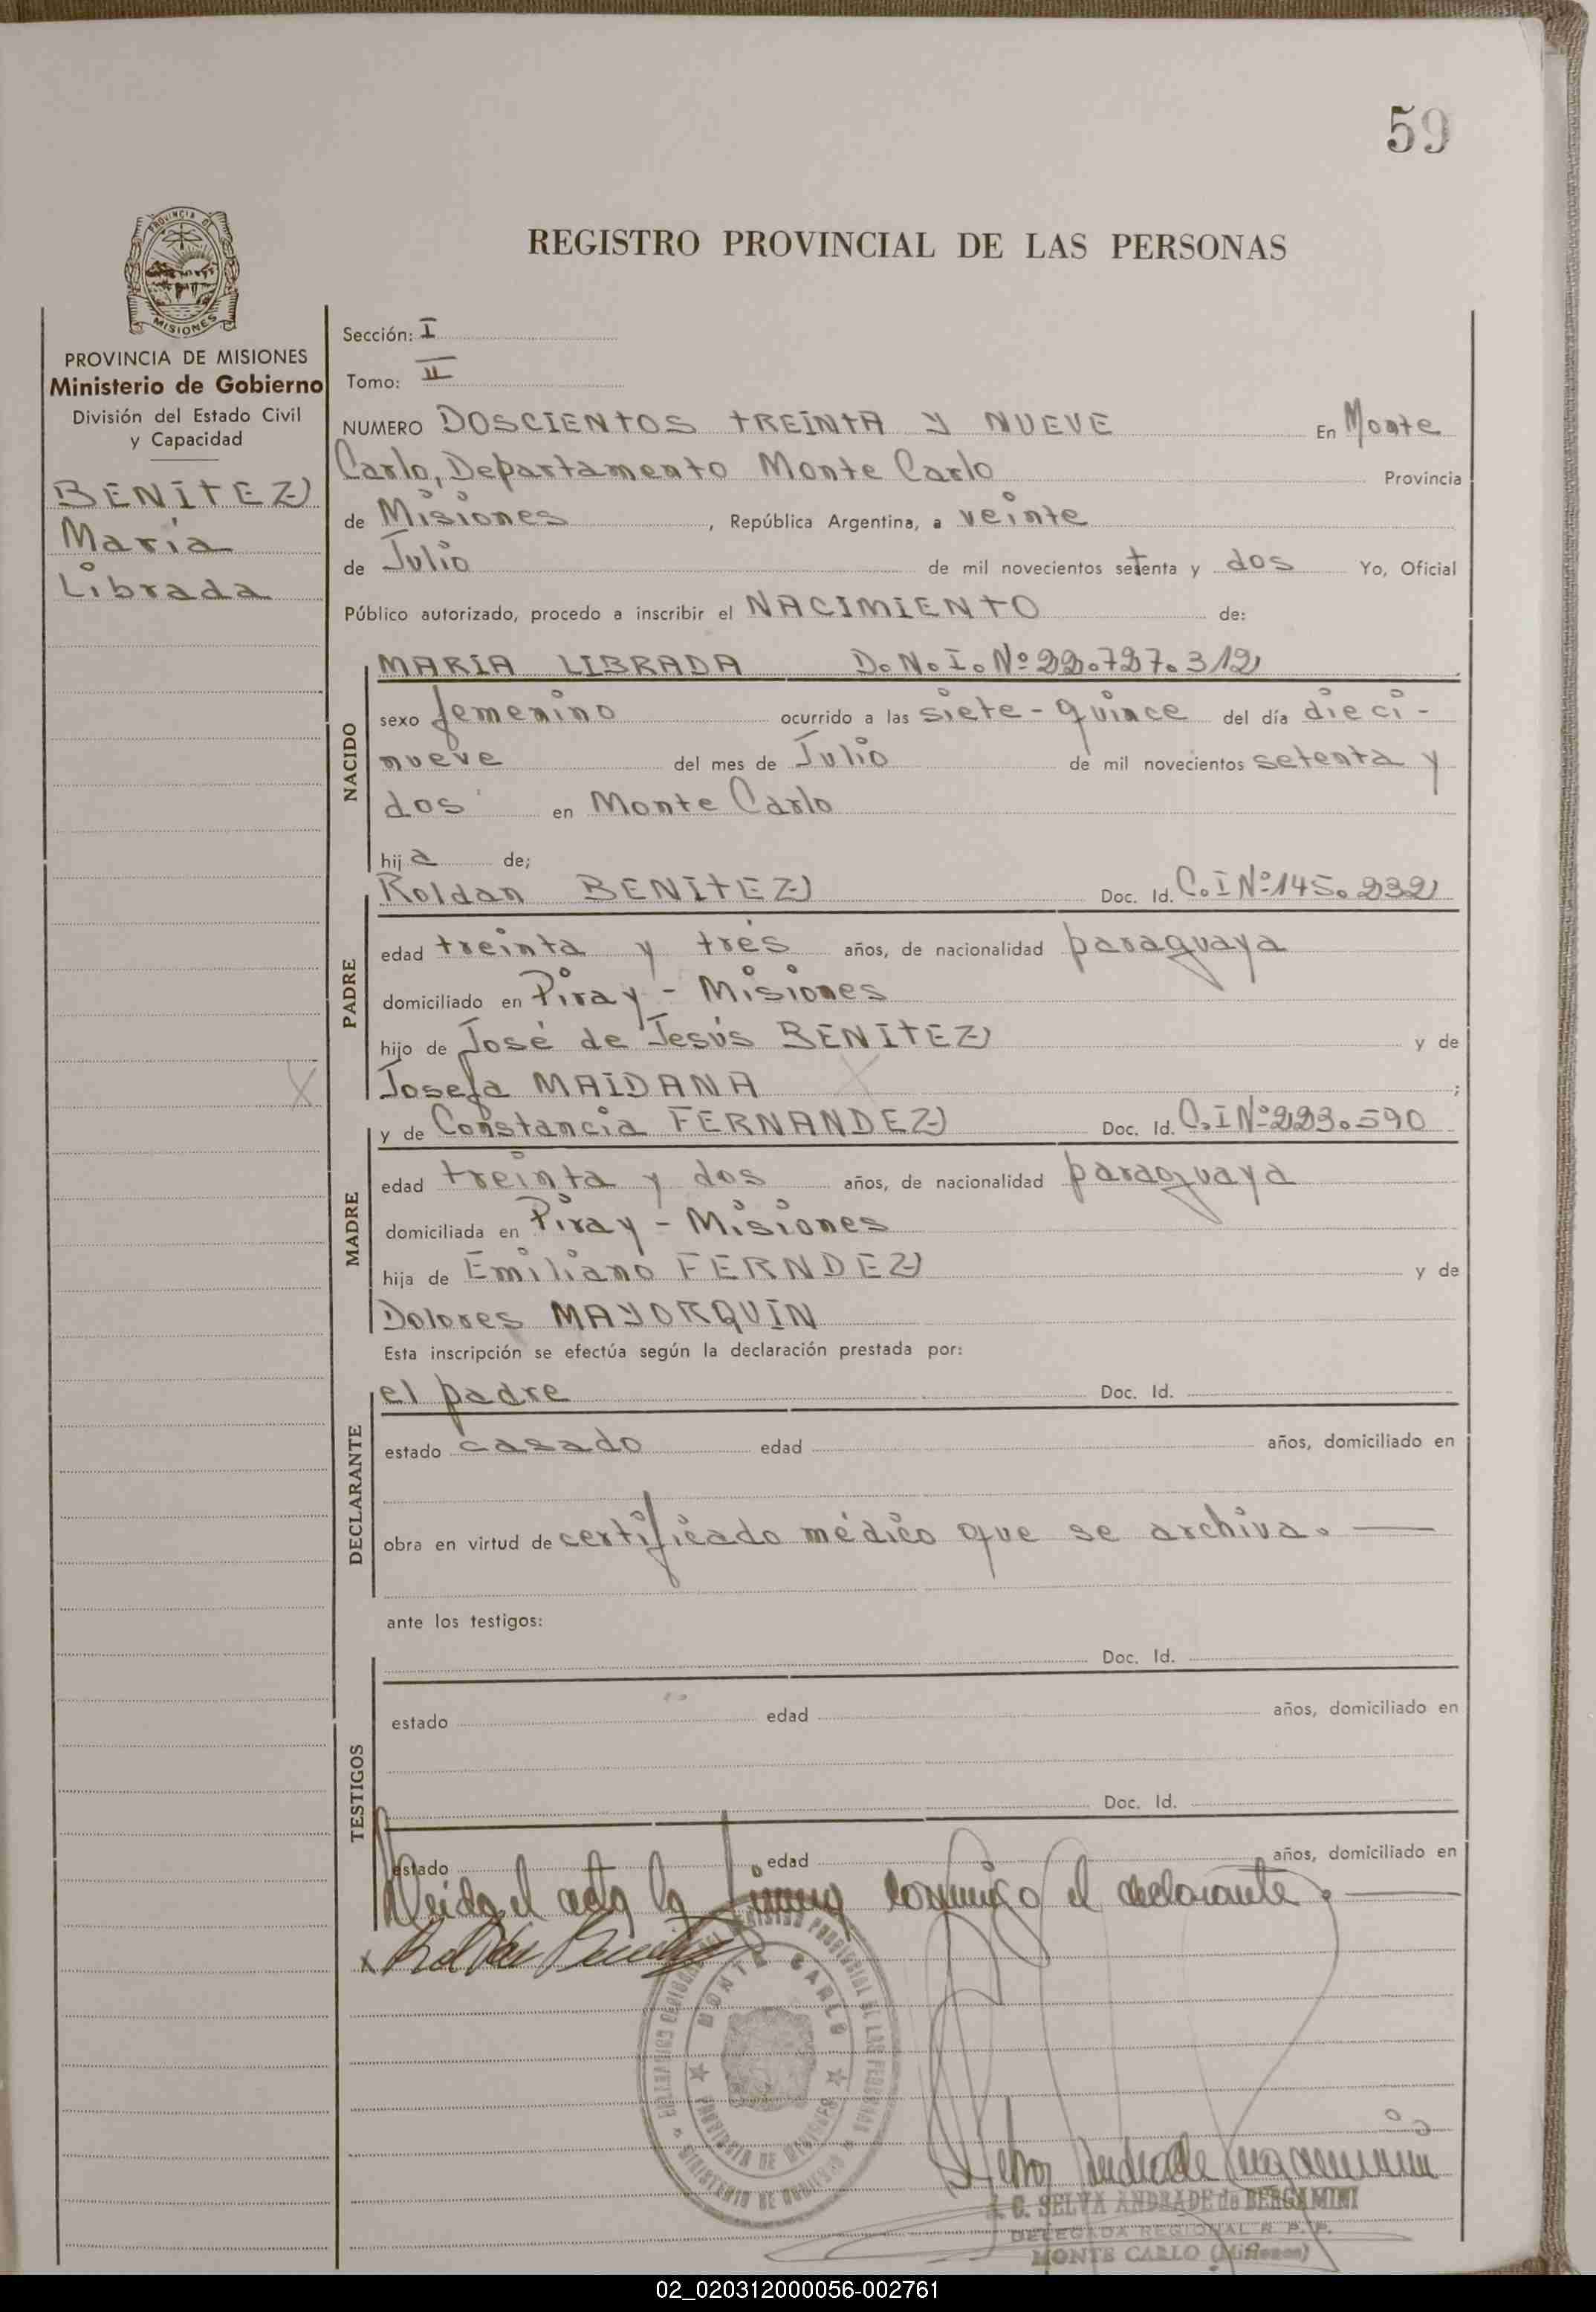 59
PROVINCIA DE
MISIONES
REGISTRO PROVINCIAL DE LAS PERSONAS
PROVINCIA DE MISIONES
Ministerio de Gobierno
División del Estado Civil
y Capacidad
BENITEZ
María
Librada
Sección: I
Tomo: II
NUMERO DOSCIENTOS TREINTA Y NUEVE En Monte
Carlo, Departamento Monte Carlo Provincia
de Misiones, República Argentina, a veinte
de Julio de mil novecientos setenta y dos Yo, Oficial
Público autorizado, procedo a inscribir el NACIMIENTO de:
NACIDO
MARIA LIBRADA D.N.I. Nº 22.727.312
sexo femenino ocurrido a las siete-quince del día dieci-
nueve del mes de Julio de mil novecientos setenta y
dos en Monte Carlo
hija de;
PADRE
Roldan BENITEZ Doc. Id. C.I Nº 145.232
edad treinta y trés años, de nacionalidad paraguaya
domiciliado en Piray - Misiones
hijo de José de Jesús BENITEZ y de
Josefa MAIDANA ;
MADRE
y de Constancia FERNANDEZ Doc. Id. C.I Nº 223.590
edad treinta y dos años, de nacionalidad paraguaya
domiciliada en Piray - Misiones
hija de Emiliano FERNDEZ y de
Dolores MAYORQUIN
Esta inscripción se efectúa según la declaración prestada por:
DECLARANTE
el padre Doc. Id.
estado casado edad años, domiciliado en
obra en virtud de certificado médico que se archiva. —
ante los testigos:
TESTIGOS
Doc. Id.
estado edad años, domiciliado en
Doc. Id.
estado edad años, domiciliado en
Leida el acta la firma conmigo el declarante. —
x Roldan Benitez
MONTE CARLO
PROVINCIA DE MISIONES
MINISTERIO DE GOBIERNO
REGISTRO PROVINCIAL DE LAS PERSONAS
C. SELVA ANDRADE de BERGAMINI
DELEGADA REGIONAL R. P. P.
MONTE CARLO (Misiones)
02_020312000056-002761